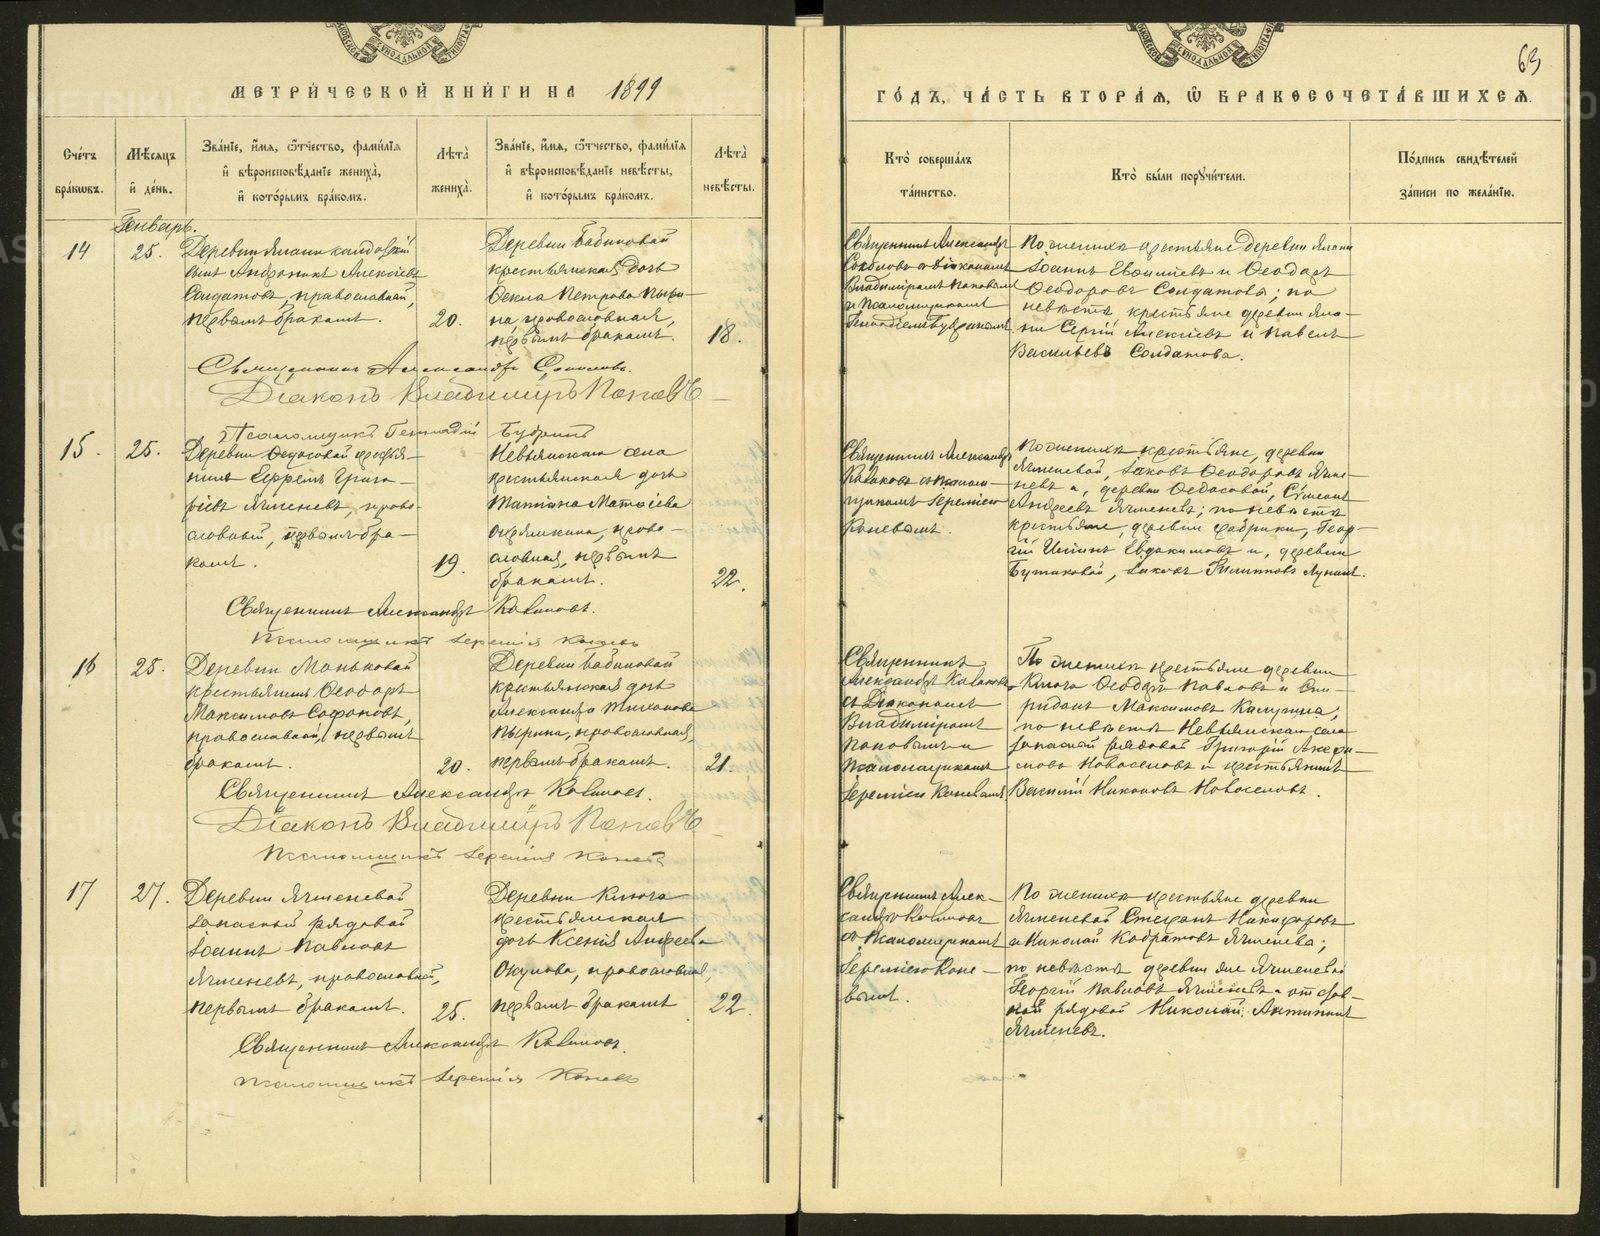 МЕТРИЧЕСКОЙ КНИГИ НА 1899
ГОДЪ, ЧАСТЬ ВТОРАЯ, Ѡ БРАКОСОЧЕТАВШИХСЯ.
63
Счетъ браковъ.
Мѣсяцъ и день.
Званіе, имя, ѿчество, фамилія и вѣроисповѣданіе жениха, и которымъ бракомъ.
Лѣта жениха.
Званіе, имя, ѿчество, фамилія и вѣроисповѣданіе невѣсты, и которымъ бракомъ.
Лѣта невѣсты.
Кто совершалъ таинство.
Кто были поручители.
Подпись свидѣтелей записи по желанію.
Генварь.
14
25.
Деревни Ялани
сынъ Андроникъ Алексіевъ
Солдатовъ, православный,
первымъ бракомъ.
20.
Деревни Бабиновой
крестьянская дочь
Ѳекла Петрова Пыри-
на, православная,
первымъ бракомъ.
18.
Священникъ Александръ
Соколовъ съ Діакономъ
Владиміромъ Поповымъ
и Псаломщикомъ
По женихѣ крестьяне деревни Ялани
Іоаннъ и Ѳеодоръ
Ѳеодоровъ Солдатовы; по
невѣстѣ крестьяне деревни Яла-
ни Сергій Алексіевъ и Павелъ
Васильевъ Солдатовы.
Священникъ Александръ Соколовъ.
Діаконъ Владиміръ Поповъ
Псаломщикъ Геннадій
15.
25.
Деревни Ѳедосовой крестья-
нинъ Ефремъ Григо-
рьевъ Ячменевъ, право-
славный, первымъ бра-
комъ.
19.
Невьянскаго села
крестьянская дочь
Татіана Матѳіева
право-
славная, первымъ
бракомъ.
22.
Священникъ Александръ
съ Псалом-
щикомъ Іереміею
Коневымъ.
По женихѣ крестьяне, деревни
Ячменевой, Іаковъ Ѳеодоровъ Ячме-
невъ и, деревни Ѳедосовой, Сѵмеонъ
Андреевъ Ячменевъ; по невѣстѣ
крестьяне, деревни Фабрики, Геор-
гій Евдокимовъ и, деревни
Бутаковой, Іаковъ Филипповъ
Священникъ Александръ
Псаломщикъ Іеремія Коневъ
16
25.
Деревни Маньковой
крестьянинъ Ѳеодоръ
Максимовъ Софоновъ,
православный, первымъ
бракомъ.
20.
Деревни Бабиновой
крестьянская дочь
Александра Тихонова
Пырина, православная,
первымъ бракомъ.
21.
Священникъ
Александръ
съ Діакономъ
Владиміромъ
Поповымъ и
Псаломщикомъ
Іереміею Коневымъ.
По женихѣ крестьяне деревни
Ключа Ѳеодоръ Павловъ и Спи-
ридонъ Максимовъ Калугины,
по невѣстѣ Невьянскаго села
запасной рядовой Григорій
Новоселовъ и крестьянинъ
Василій Никоновъ Новоселовъ.
Священникъ Александръ
Діаконъ Владиміръ Поповъ
Псаломщикъ Іеремія Коневъ
17
27.
Деревни Ячменевой
запасный рядовой
Іоаннъ Павловъ
Ячменевъ, православный,
первымъ бракомъ.
25.
Деревни Ключа
крестьянская
дочь Ксенія Алфеева
Окулова, православная,
первымъ бракомъ
22.
Священникъ Алек-
сандръ
съ Псаломщикомъ
Іереміею Коне-
вымъ.
По женихѣ крестьяне деревни
Ячменевой Стефанъ Никифоровъ
и Николай Кодратовъ Ячменевы;
по невѣстѣ деревни Ячменевой
Георгій Павловъ Ячменевъ и отстав-
ной рядовой Николай Антипинъ
Ячменевъ.
Священникъ Александръ
Псаломщикъ Іеремія Коневъ
METRIKI.GASO-URAL.RU